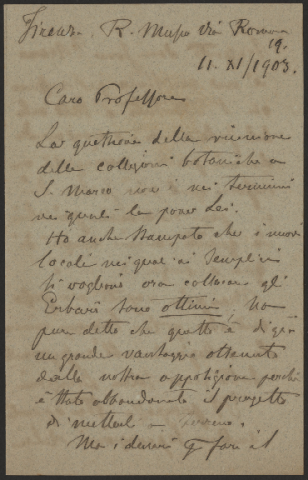 Firenze, R. Museo Via Romana
19.
11. XI/1903.
Caro Professore
La questione della riunione
delle collezioni botaniche a
S. Marco non è nei termini
nei quali la pone Lei.
Ho anche stampato che i nuovi
locali nei quali ai Semplici
si vogliono ora collocare gli
Erbarii sono ottimi, ho
pure detto che questo è di già
un grande vantaggio ottenuto
dalla nostra opposizione perché
è stato abbandonato il progetto
di metterli a
Ma i denari p. fare il